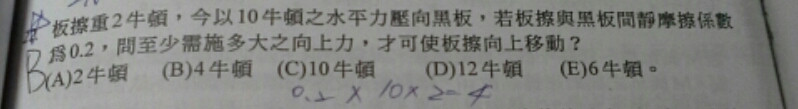 板擦重2牛頓，今以10牛頓之水平力壓向黑板，若板擦與黑板間靜摩擦係數
為0.2，問至少需施多大之向上力，才可使板擦向上移動？
B(A)2牛頓 (B)4牛頓 (C)10牛頓 (D)12牛頓 (E)6牛頓。
0.2 × 10 × 2 = 4